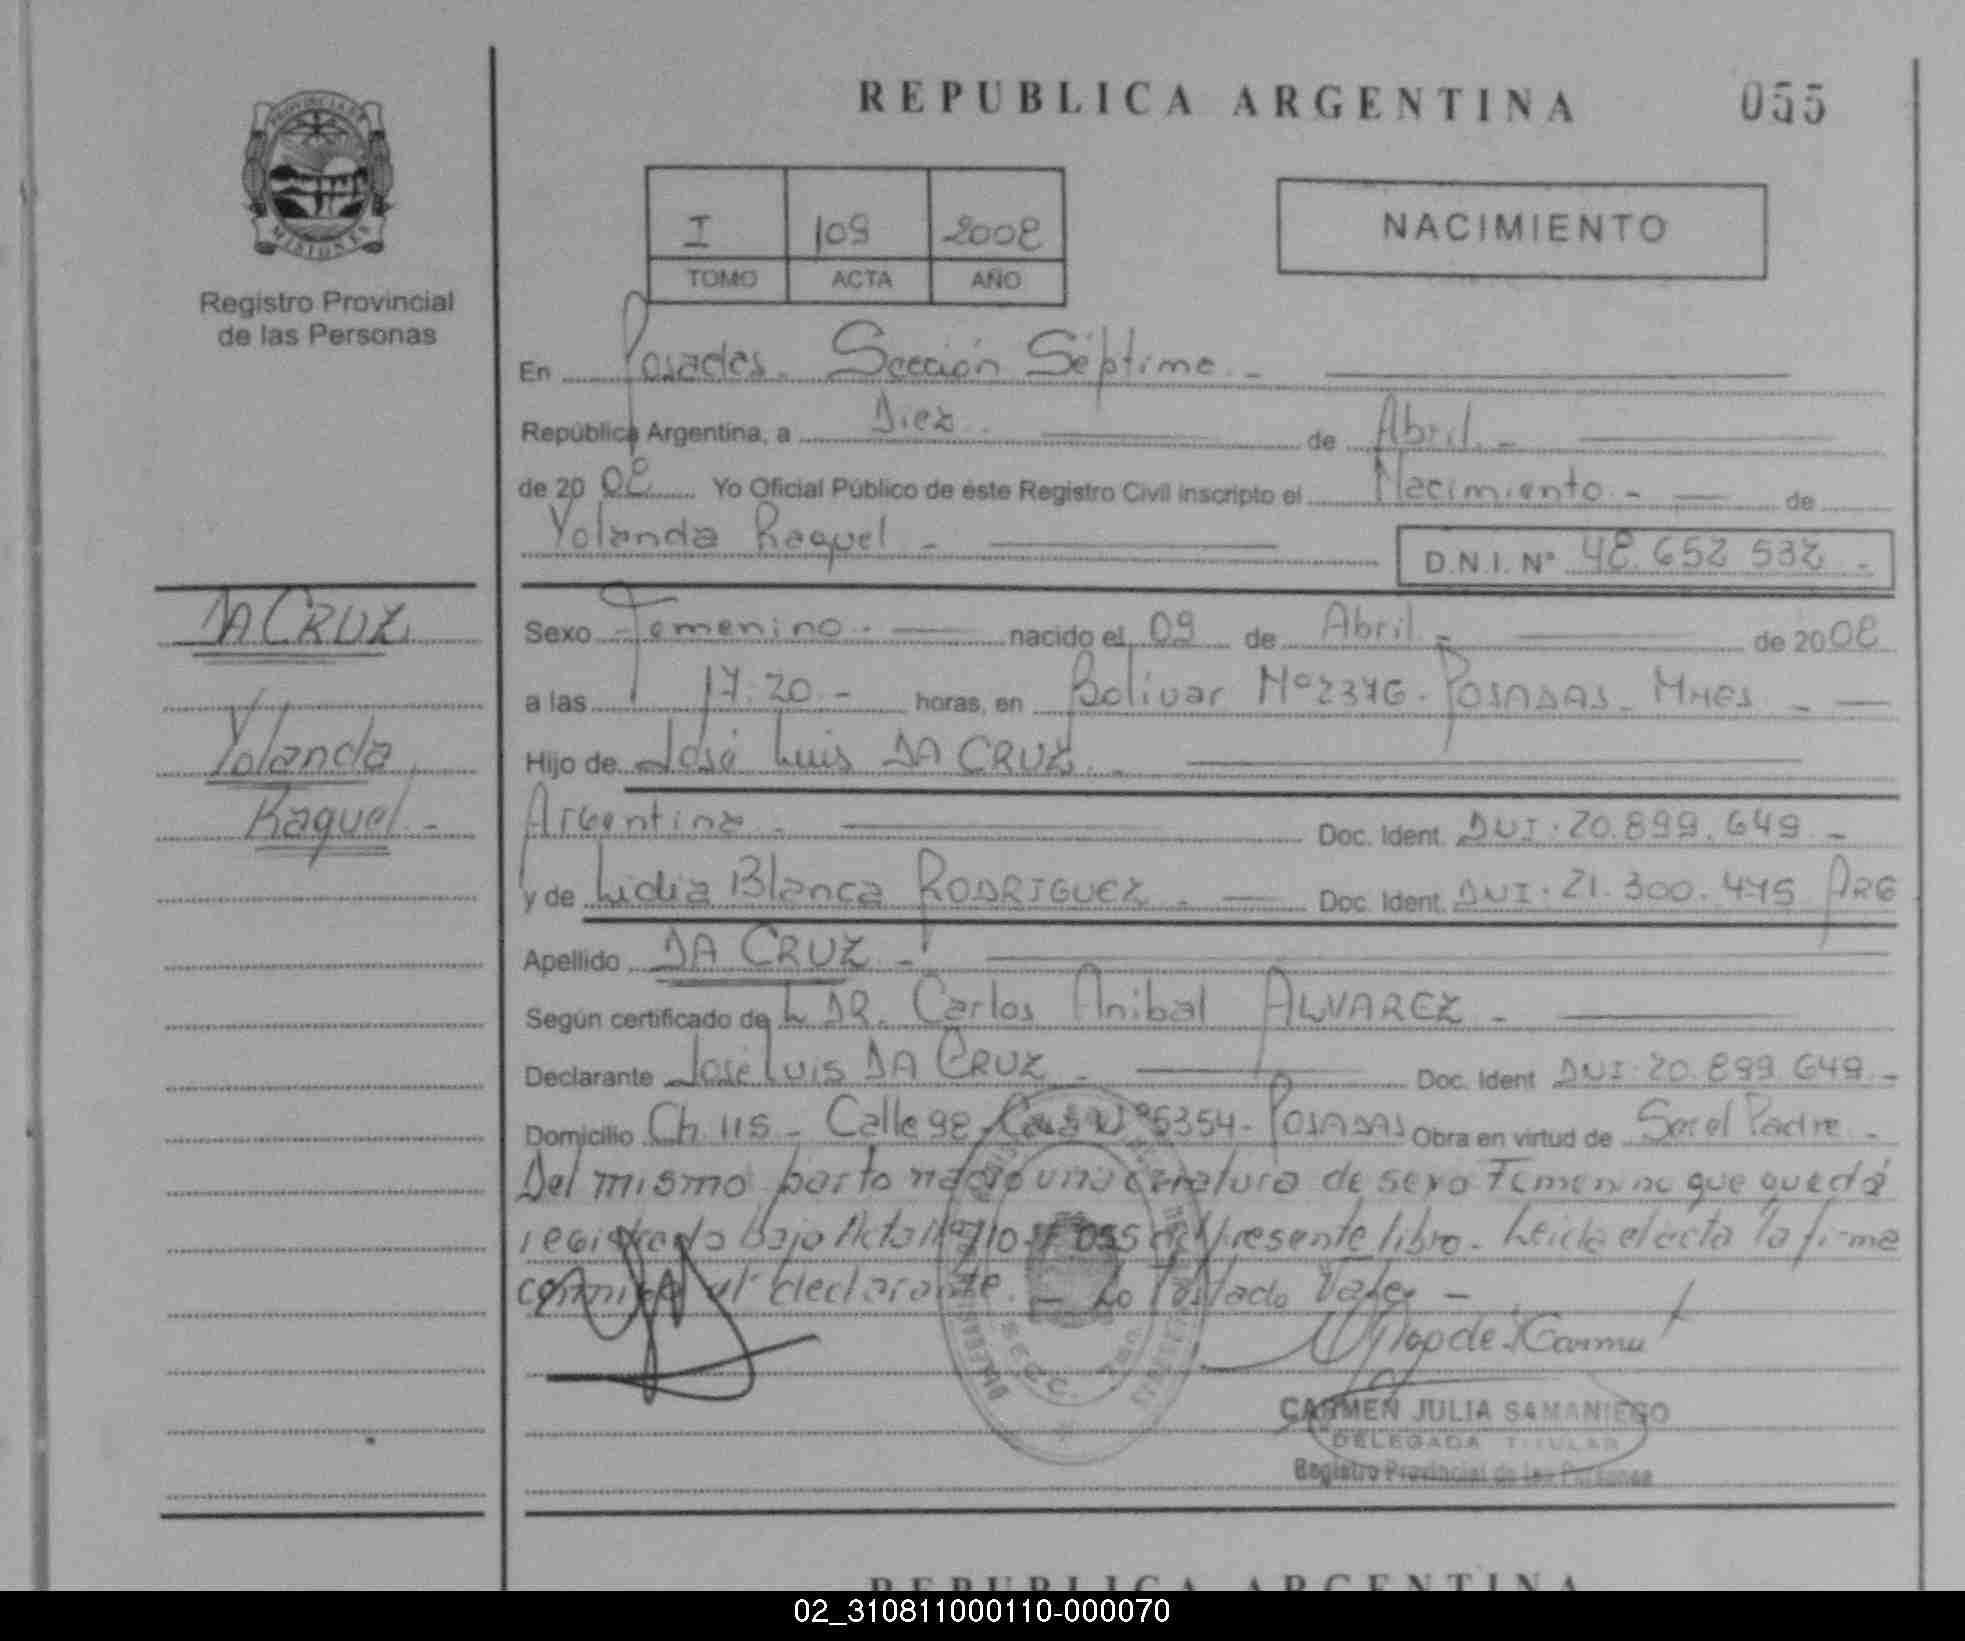 REPUBLICA ARGENTINA 055
PROVINCIA DE
MISIONES
Registro Provincial
de las Personas
I 109 2008
TOMO ACTA AÑO
NACIMIENTO
En Posadas. Sección Séptima. -
República Argentina, a Diez. de Abril. -
de 2008 Yo Oficial Público de éste Registro Civil inscripto el Nacimiento. - de
Yolanda Raquel - D.N.I. N° 48.652 532 -
DA CRUZ
Yolanda
Raquel. -
Sexo Femenino. - nacido el 09 de Abril - de 2008
a las 17:20 - horas, en Bolivar Nº 2376. POSADAS - MNES -
Hijo de José Luis DA CRUZ. -
Argentina - Doc. Ident. DNI. 20.899.649 -
y de Lidia Blanca RODRIGUEZ. - Doc. Ident. DNI. 21.300.475 ARG
Apellido DA CRUZ. -
Según certificado de DR. Carlos Anibal ALVAREZ -
Declarante José Luis DA CRUZ - Doc. Ident DNI. 20.899.649. -
Domicilio Ch. 115 - Calle 98 - Casa Nº 5354 - POSADAS Obra en virtud de Ser el Padre. -
Del mismo parto nació una criatura de sexo Femenino que quedó
registrada bajo Acta Nº 110 Fº 055 del presente libro. Leida el acta la firma
conmigo el declarante. - Lo Vale. -
SECC. 7ma.
CARMEN JULIA SAMANIEGO
DELEGADA TITULAR
Registro Provincial de las Personas
REPUBLICA ARGENTINA
02_310811000110-000070